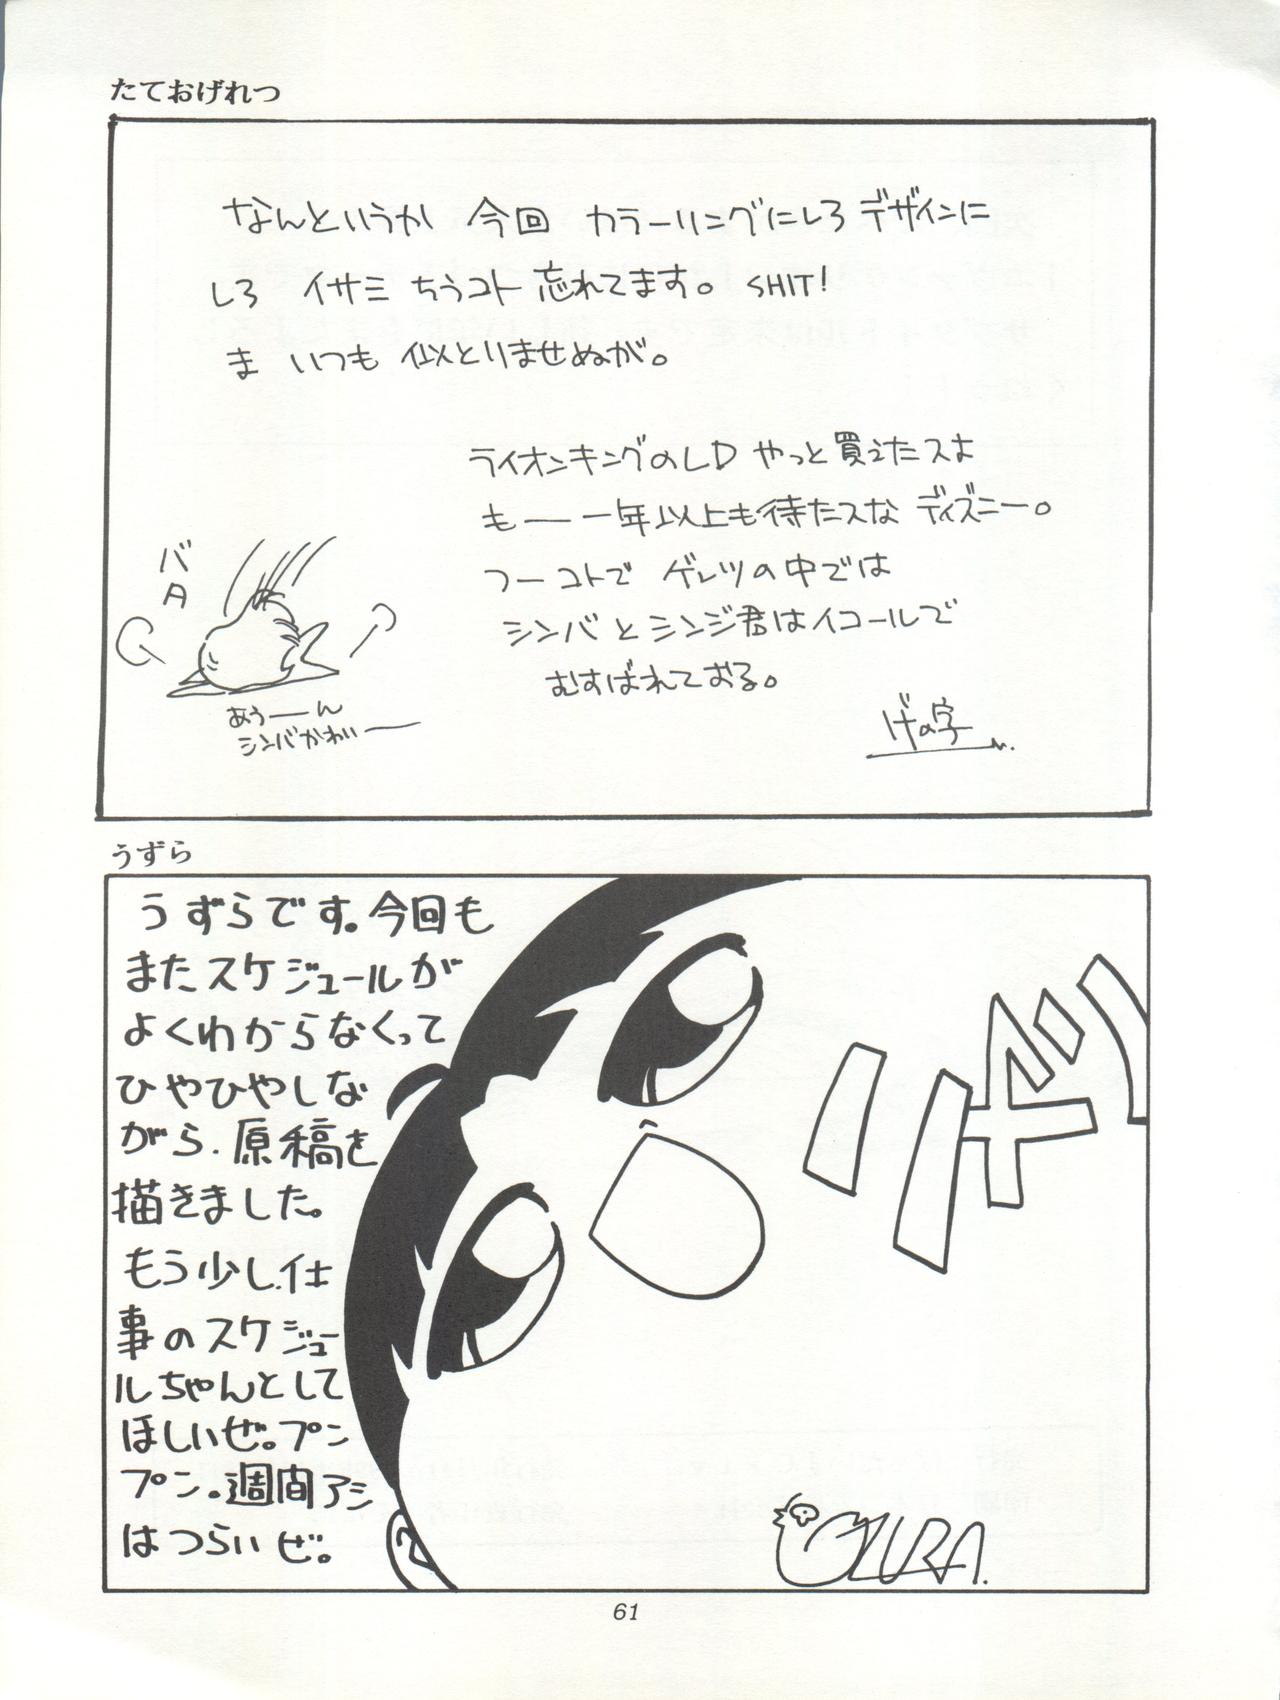 たておげれつ
なんというか 今回 カラーリングにしろ デザインに
しろ イサミ ちうコト 忘れてます。 SHIT!
ま いつも 似とりませぬが。
ライオンキングのLD やっと買えたスよ
も── 一年以上も待たスな ディズニー。
つーコトで ゲレツの中では
シンバとシンジ君はイコールで
むすばれておる。
バタ
あぅ──ん
シンバかわいー
げの字
うずら
うずらです。今回も
またスケジュールが
よくわからなくって
ひやひやしな
がら、原稿を
描きました。
もう少し、仕
事のスケジュー
ルちゃんとして
ほしいぜ。プン
プン。週間アシ
はつらいぜ。
UZURA.
61